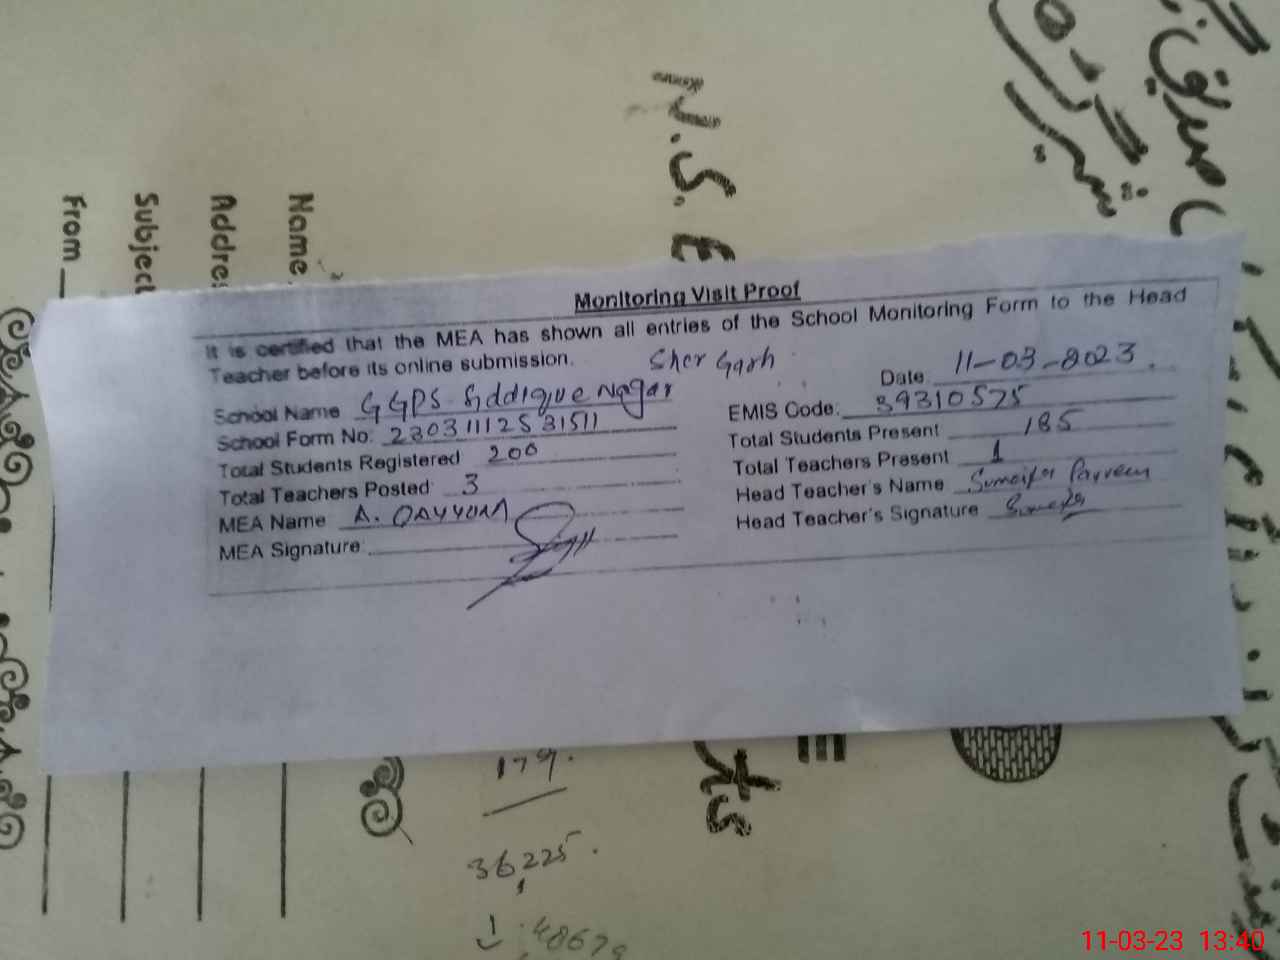 صدیق
شیر گڑھ
N.S.
Name
Address
Subject
From
Monitoring Visit Proof
It is certified that the MEA has shown all entries of the School Monitoring Form to the Head
Teacher before its online submission.
Sher Garh
Date 11-03-2023.
School Name GGPS Siddique Nagar
EMIS Code: 39310575
School Form No: 23031112531511
Total Students Present 185
Total Students Registered 200
Total Teachers Present 1
Total Teachers Posted 3
Head Teacher's Name Sumaira Parveen
MEA Name A. QAYYUM
Head Teacher's Signature Sumaira
MEA Signature:
179.
36225.
11-03-23 13:40